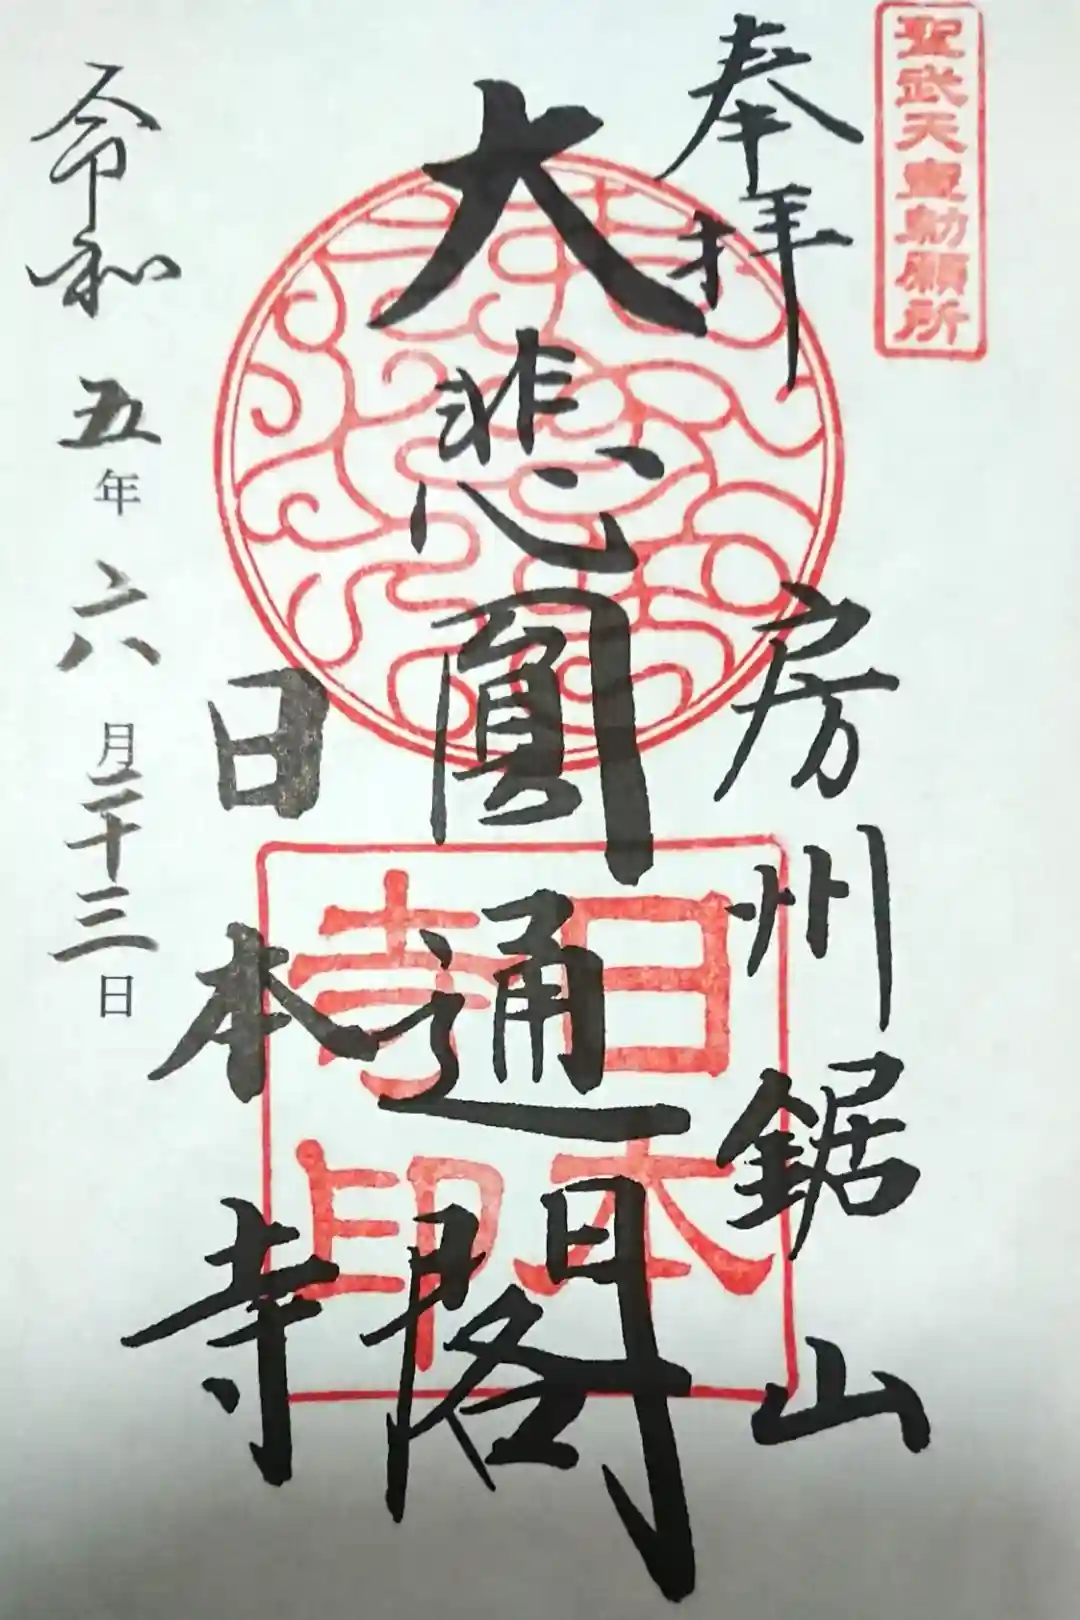 聖武天皇勅願所
奉拝
房州鋸山
大悲圓通閣
日本寺
日本
寺印
令和五年六月二十三日